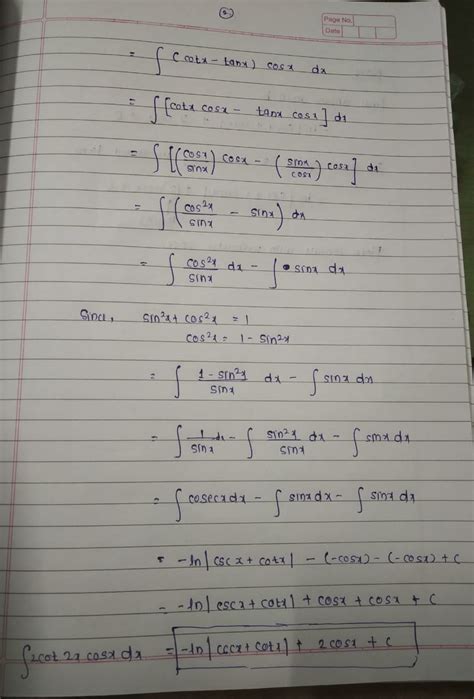 2
Page No.
Date
= ∫ (cotx - tanx) cosx dx
= ∫ [cotx cosx - tanx cosx] dx
= ∫ [(cosx/sinx) cosx - (sinx/cosx) cosx] dx
= ∫ (cos²x/sinx - sinx) dx
= ∫ cos²x/sinx dx - ∫ sinx dx
Since, sin²x + cos²x = 1
cos²x = 1 - sin²x
= ∫ 1 - sin²x/sinx dx - ∫ sinx dx
= ∫ 1/sinx dx - ∫ sin²x/sinx dx - ∫ sinx dx
= ∫ cosecx dx - ∫ sinx dx - ∫ sinx dx
= -ln|cscx + cotx| - (-cosx) - (-cosx) + c
= -ln|cscx + cotx| + cosx + cosx + c
∫2cot 2x cosx dx = -ln|cscx + cotx| + 2cosx + c